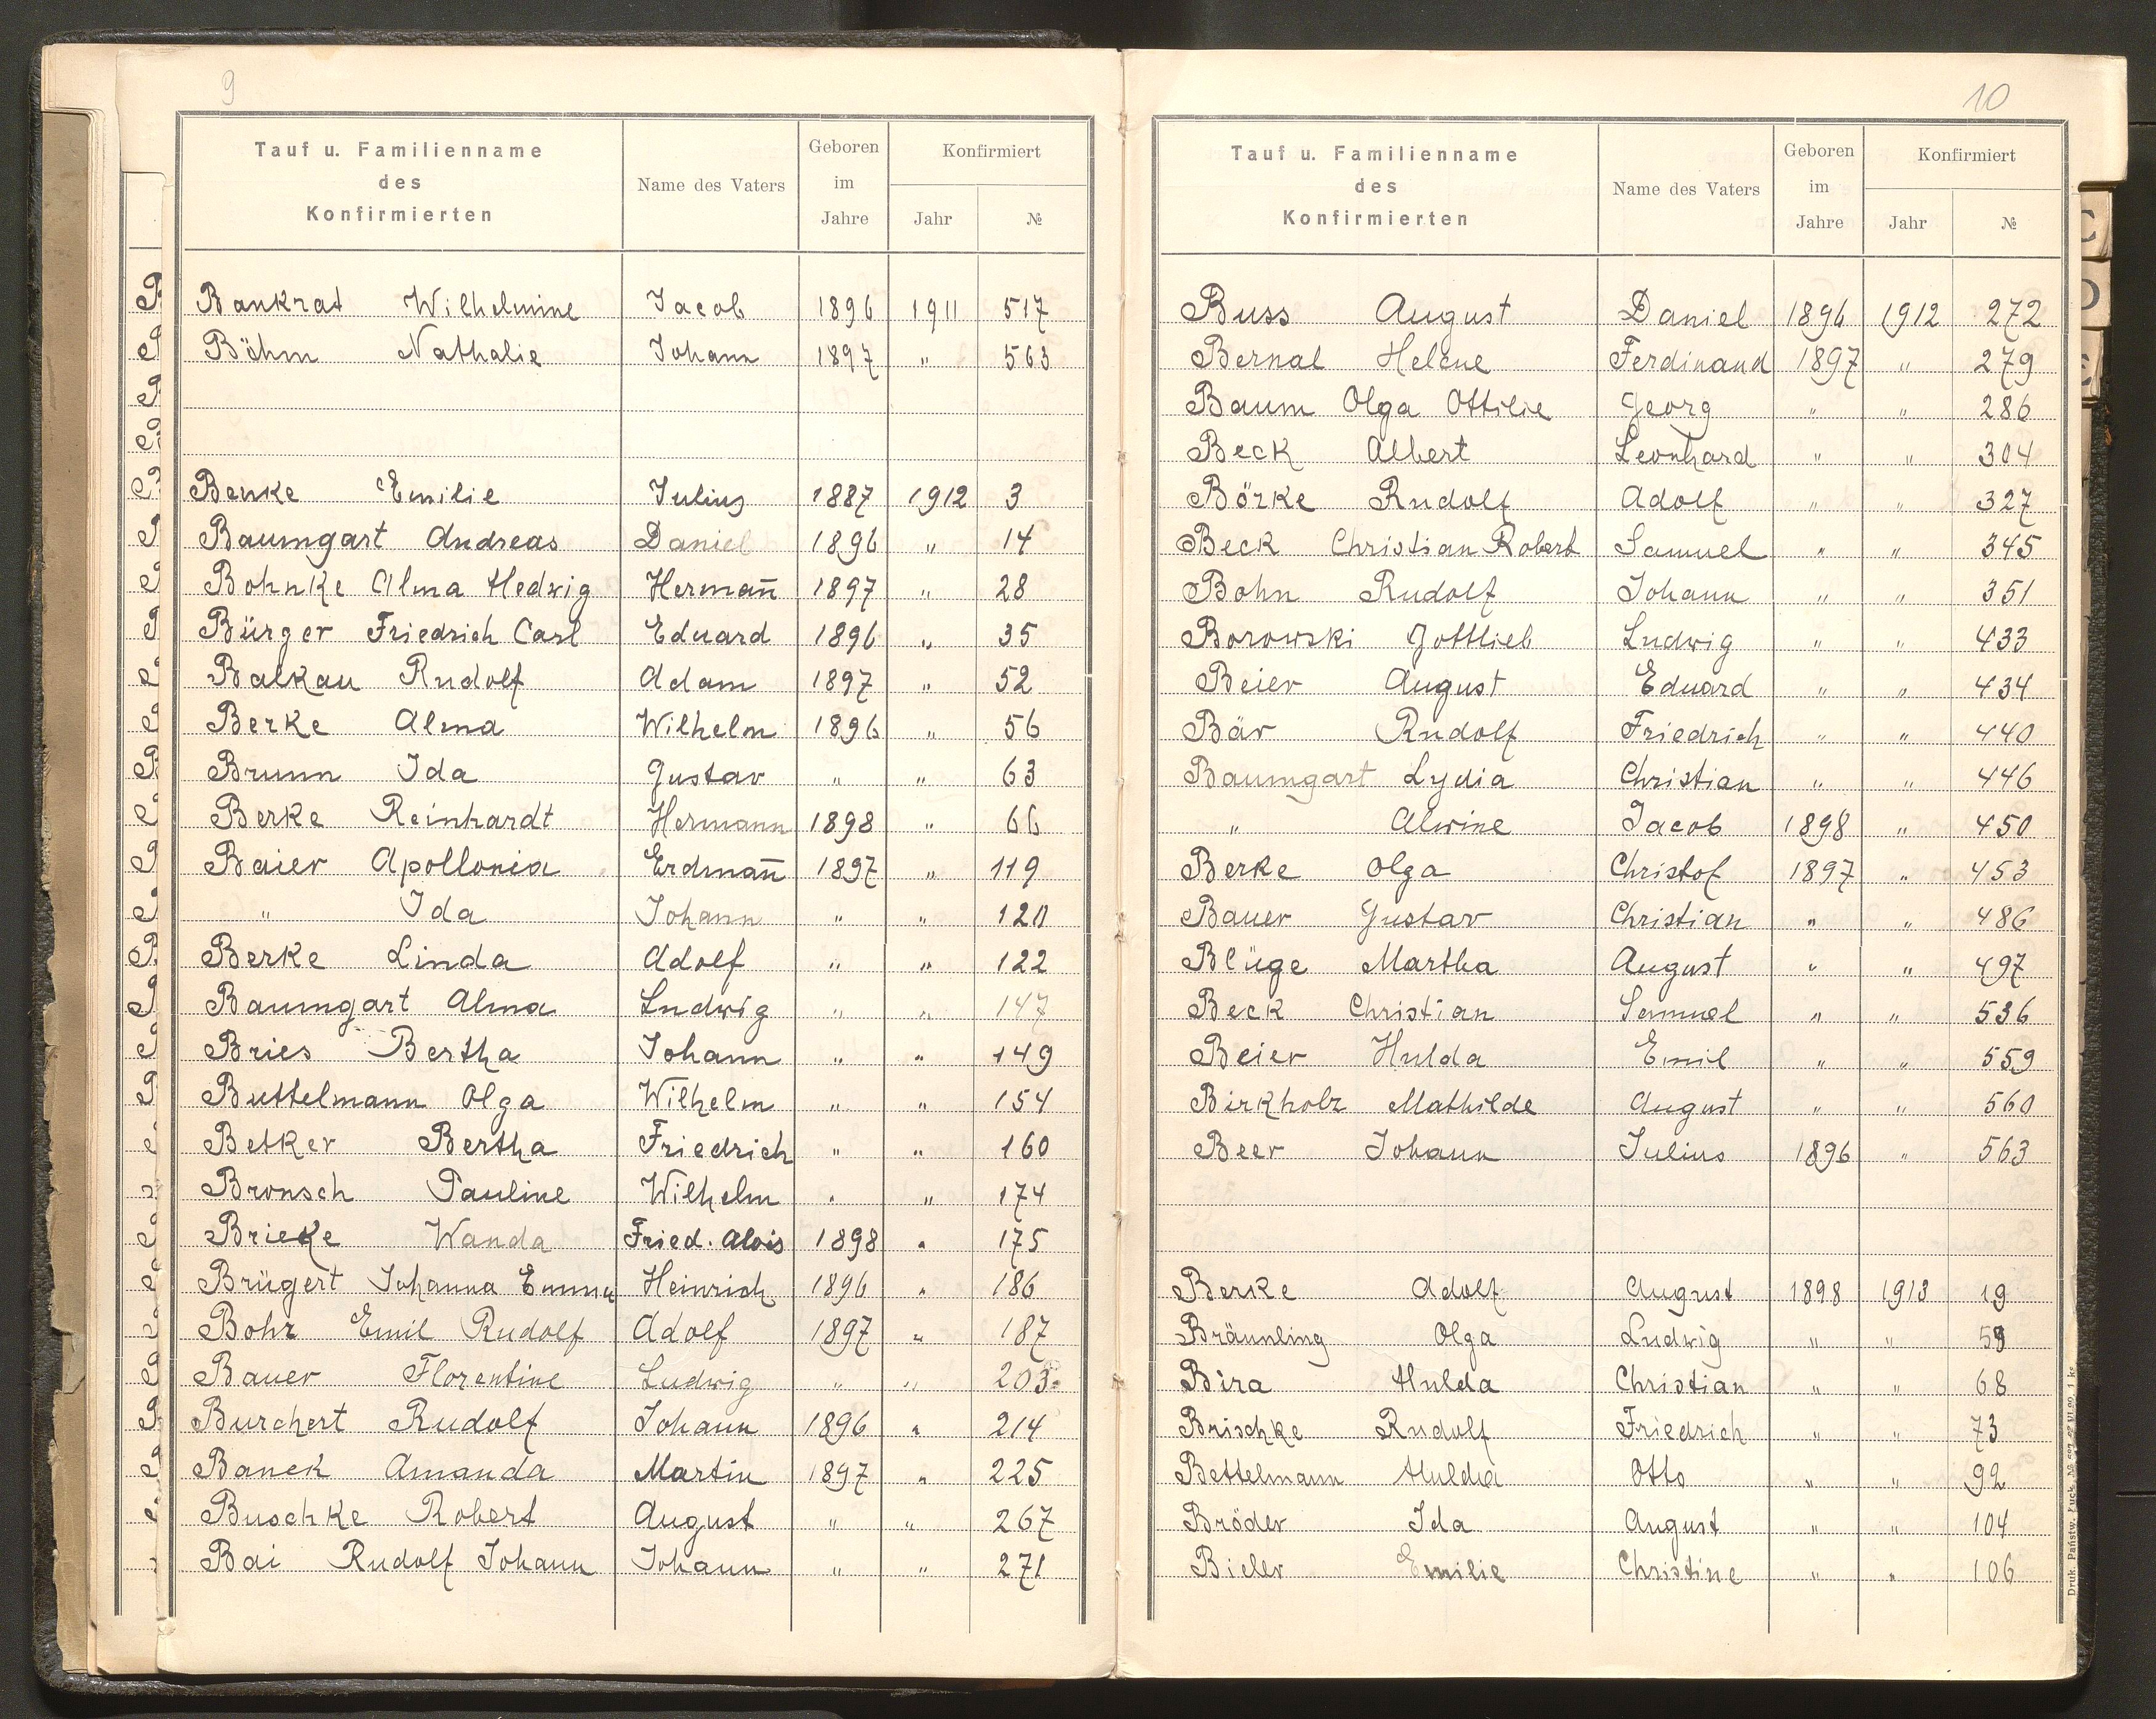 9
Tauf u. Familienname des Konfirmierten Name des Vaters Geboren im Jahre Konfirmiert Jahr №
Bankrat Wilhelmine Jacob 1896 1911 517
Böhm Nathalie Johann 1897 " 563
Benke Emilie Julius 1887 1912 3
Baumgart Andreas Daniel 1896 " 14
Bohnke Alma Hedwig Herman̄ 1897 " 28
Bürger Friedrich Carl Eduard 1896 " 35
Balkau Rudolf Adam 1897 " 52
Berke Alma Wilhelm 1896 " 56
Brunn Ida Gustav " " 63
Berke Reinhardt Hermann 1898 " 66
Baier Apollonia Erdman̄ 1897 " 119
" Ida Johann " " 120
Berke Linda Adolf " " 122
Baumgart Alma Ludwig " " 147
Bries Bertha Johann " " 149
Buttelmann Olga Wilhelm " " 154
Betker Bertha Friedrich " " 160
Bronsch Pauline Wilhelm " " 174
Brieke Wanda Fried. Alois 1898 " 175
Brügert Johanna Emma Heinrich 1896 " 186
Bohr Emil Rudolf Adolf 1897 " 187
Bauer Florentine Ludwig " " 203
Burchert Rudolf Johann 1896 " 214
Banek Amanda Martin 1897 " 225
Buschke Robert August " " 267
Bai Rudolf Johann Johann " " 271
10
Tauf u. Familienname des Konfirmierten Name des Vaters Geboren im Jahre Konfirmiert Jahr №
Buss August Daniel 1896 1912 272
Bernal Helene Ferdinand 1897 " 279
Baum Olga Ottilie Georg " " 286
Beck Albert Leonhard " " 304
Börke Rudolf Adolf " " 327
Beck Christian Robert Samuel " " 345
Bohn Rudolf Johann " " 351
Borowski Gottlieb Ludwig " " 433
Beier August Eduard " " 434
Bär Rudolf Friedrich " " 440
Baumgart Lydia Christian " " 446
" Alwine Jacob 1898 " 450
Berke Olga Christof 1897 " 453
Bauer Gustav Christian " " 486
Blüge Martha August " " 497
Beck Christian Samuel " " 536
Beier Hulda Emil " " 559
Birkholz Mathilde August " " 560
Beer Johann Julius 1896 " 563
Berke Adolf August 1898 1913 19
Bräunling Olga Ludwig " "
Bira Hulda Christian " " 68
Brischke Rudolf Friedrich " " 73
Bettelmann Hulda Otto " " 92
Bröder Ida August " " 104
Bieler Emilie Christine " " 106
C
D
E